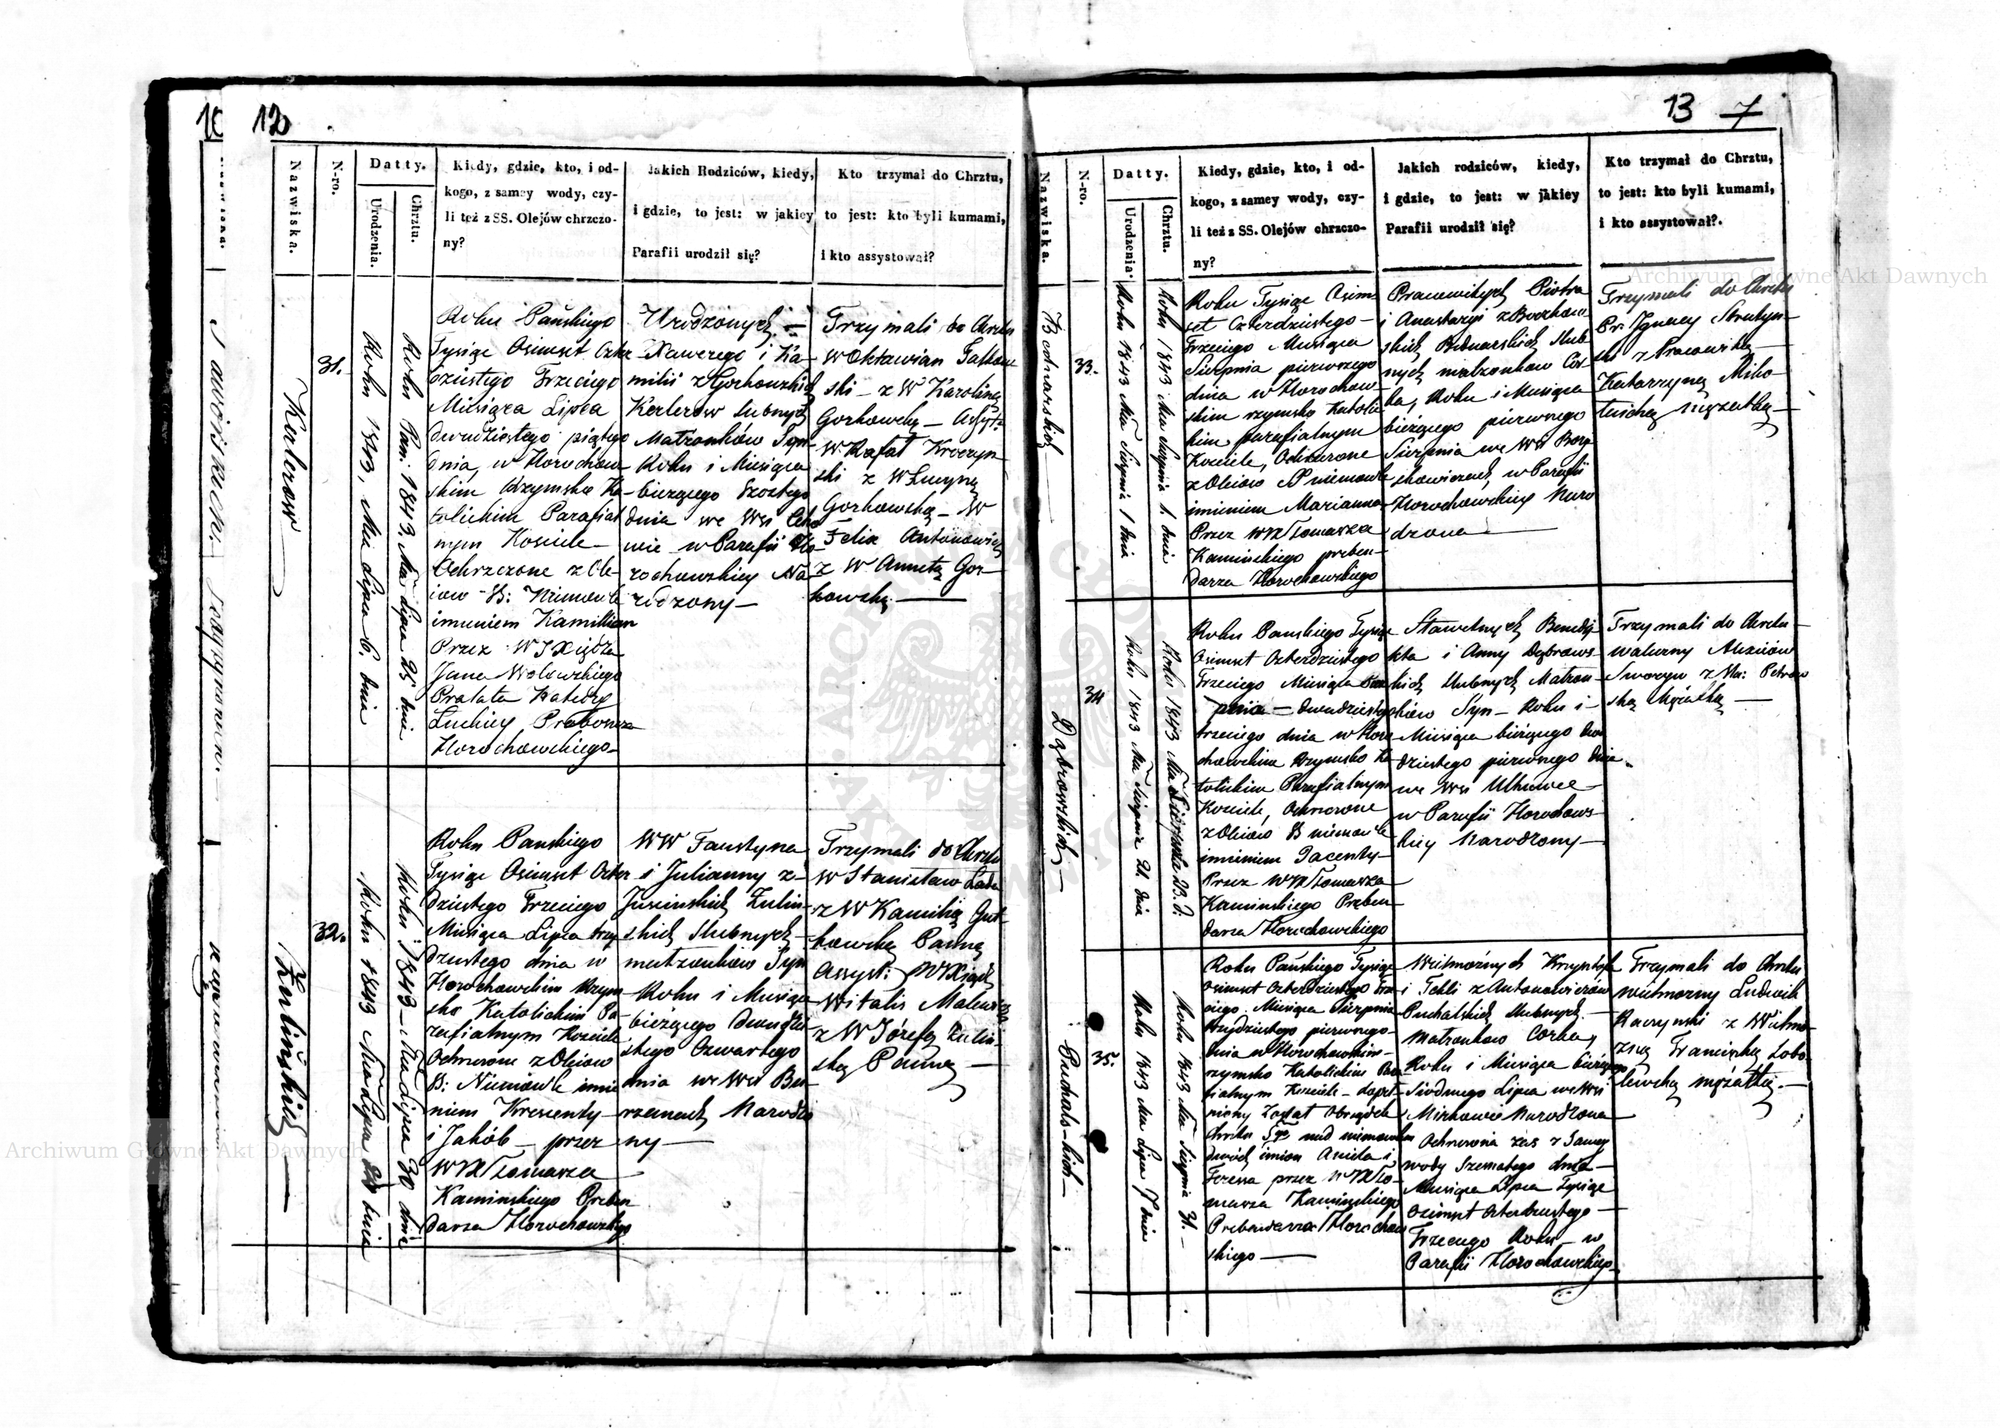 12
Nazwiska.
N-ro.
Datty.
Urodzenia.
Chrztu.
Kiedy, gdzie, kto, i od-
kogo, z samey wody, czy-
li też z SS. Olejów chrzczo-
ny?
Jakich Rodziców, kiedy,
i gdzie, to jest: w jakiey
Parafii urodził się?
Kto trzymał do Chrztu,
to jest: kto byli kumami,
i kto assystował?
Kerlerow
31.
Roku 1843, Mca Lipca 6. dnia
Roku Pan: 1843. Mca Lipca 25 dnia
Roku Pańskiego
Tysiąc Osimset Czter
dziestego Trzeciego
Miesiąca Lipca
dwudziestego piątego
dnia, w Horochow
skim Rzymsko Ka-
tolickim Parafial
nym Kosciele
Ochrzczone z Ole
iow S: Niemowle
imieniem Kamillian
Przez WJXiędza
Jana
Prałata Katedry
Łuckiey Proboszcza
Horochowskiego
Urodzonych
Xawerego i Ka
milii z Gorkowskich
Kerlerow Slubnych
Małżonków Syn
Roku i Miesiąca
bieżącego Szostego
dnia we Wsi
w Parafii Ho
rochowskiey Na
rodzony
Trzymali do Chrztu
W Oktawian
ski z W Karoliną
Gorkowską Assyst:
W Rafał Kroczyn
ski z W Lucyną
Gorkowską W
Felix Antonowicz
z W Annetą Gor
kowską
Żulińskich
32.
Roku 1843 Mca Lipca dnia
Roku 1843 Mca Lipca 30 dnia
Roku Pańskiego
Tysiąc Osimset Czter
dziestego Trzeciego
Miesiąca Lipca trzy
dziestego dnia w
Horochowskim Rzym
sko Katolickim Pa
rafialnym Kosciele
Ochrzczone z Oleiow
S: Niemowle imie
niem Kresenty
i Jakób przez
WJX Tomarza
Kaminskiego Preben
darza Horochowskiego
WW Faustyna
i Julianny z
Jusinskich Żulin
skich Slubnych
małżonków Syn
Roku i Miesiąca
bieżącego Dwudzie
stego Czwartego
dnia we Wsi
Narodzo
ny
Trzymali do Chrztu
W Stanisław
z W Kamilią
kowską Panną
Assyst: WXiądz
Witalis
z W Józefą Żulin
ską Panną
13 7
Nazwiska.
N-ro.
Datty.
Urodzenia.
Chrztu.
Kiedy, gdzie, kto, i od-
kogo, z samey wody, czy-
li też z SS. Olejów chrzczo-
ny?
Jakich rodziców, kiedy,
i gdzie, to jest: w jakiey
Parafii urodził się?
Kto trzymał do Chrztu,
to jest: kto byli kumami,
i kto assystował?.
Bednarskich
33.
Roku 1843 Mca Sierpnia 1 dnia
Roku 1843 Mca Sierpnia 1. dnia
Roku Tysiąc Osim
set Czterdziestego
Trzeciego Miesiąca
Sierpnia pierwszego
dnia w Horochow
skim rzymsko Katoli
kim parafialnym
Kosciele, Ochrzczone
z Oleiow S niemowle
imieniem Marianna
Przez WJX Tomarza
Kaminskiego preben
darza Horochowskiego
Pracowitych Piotra
i Anastazyi z
skich Bednarskich Slub
nych małżonkow Cor
ka, Roku i Miesiąca
bieżącego pierwszego
Sierpnia we Wsi
w Parafii
Horochowskiey Naro
dzona
Trzymali do Chrztu
Pr: Ignacy
ski z Pracowitą
Katarzyną
Mężatką
Dąbrowskich
34
Roku 1843 Mca Sierpnia 21. dnia
Roku 1843 Mca Sierpnia 23. d.
Roku Pańskiego Tysiąc
Osimset Czterdziestego
Trzeciego Miesiąca Sier
pnia dwudziestego
trzeciego dnia w Horo
chowskim Rzymsko Ka
tolickim Parafialnym
Kosciele, Ochrzczone
z Oleiow S niemowle
imieniem Jacenty
Przez WJX Tomarza
Kaminskiego Preben
darza Horochowskiego
Sławetnych Benedy
kta i Anny Dąbrows
kich Slubnych Małżon
ków Syn Roku i
Miesiąca bieżącego Dwu
dziestego pierwszego dnia
we Wsi
w Parafii Horochows
kiey Narodzony
Trzymali do Chrztu
z Petron
ską Mężatką
Puchalskich
35.
Roku 1843 Mca Lipca 7 dnia
Roku 1843 Mca Sierpnia 31.
Roku Pańskiego Tysiąc
Osimset Czterdziestego Trze
ciego Miesiąca Sierpnia
trzydziestego pierwszego
dnia w Horochowskim
rzymsko Katolickim Para
fialnym Kosciele dopeł
niony Został Obrządek
Chrztu Sgo nad niemowlem
dwóch imion Aniela i
Teresa przez WJX To
marza Kaminskiego
Prebendarza Horochow
skiego
Wielmożnych Krzysztofa
i Tekli z Antonowiczów
Puchalskich Slubnych
Małżonkow Corka,
Roku i Miesiąca bieżącego
Siodmego Lipca we Wsi
Mirkowie Narodzona
Ochrzczona zas z Samey
wody Szesnastego dnia
Miesiąca Lipca Tysiąc
Osimset Czterdziestego
Trzeciego Roku w
Parafii Horochowskiey
Trzymali do Chrztu
wielmozny Ludwik
Raczynski z Wielmo
zną Franciszką
mężatką.
Archiwum Główne Akt Dawnych
Archiwum Główne Akt Dawnych